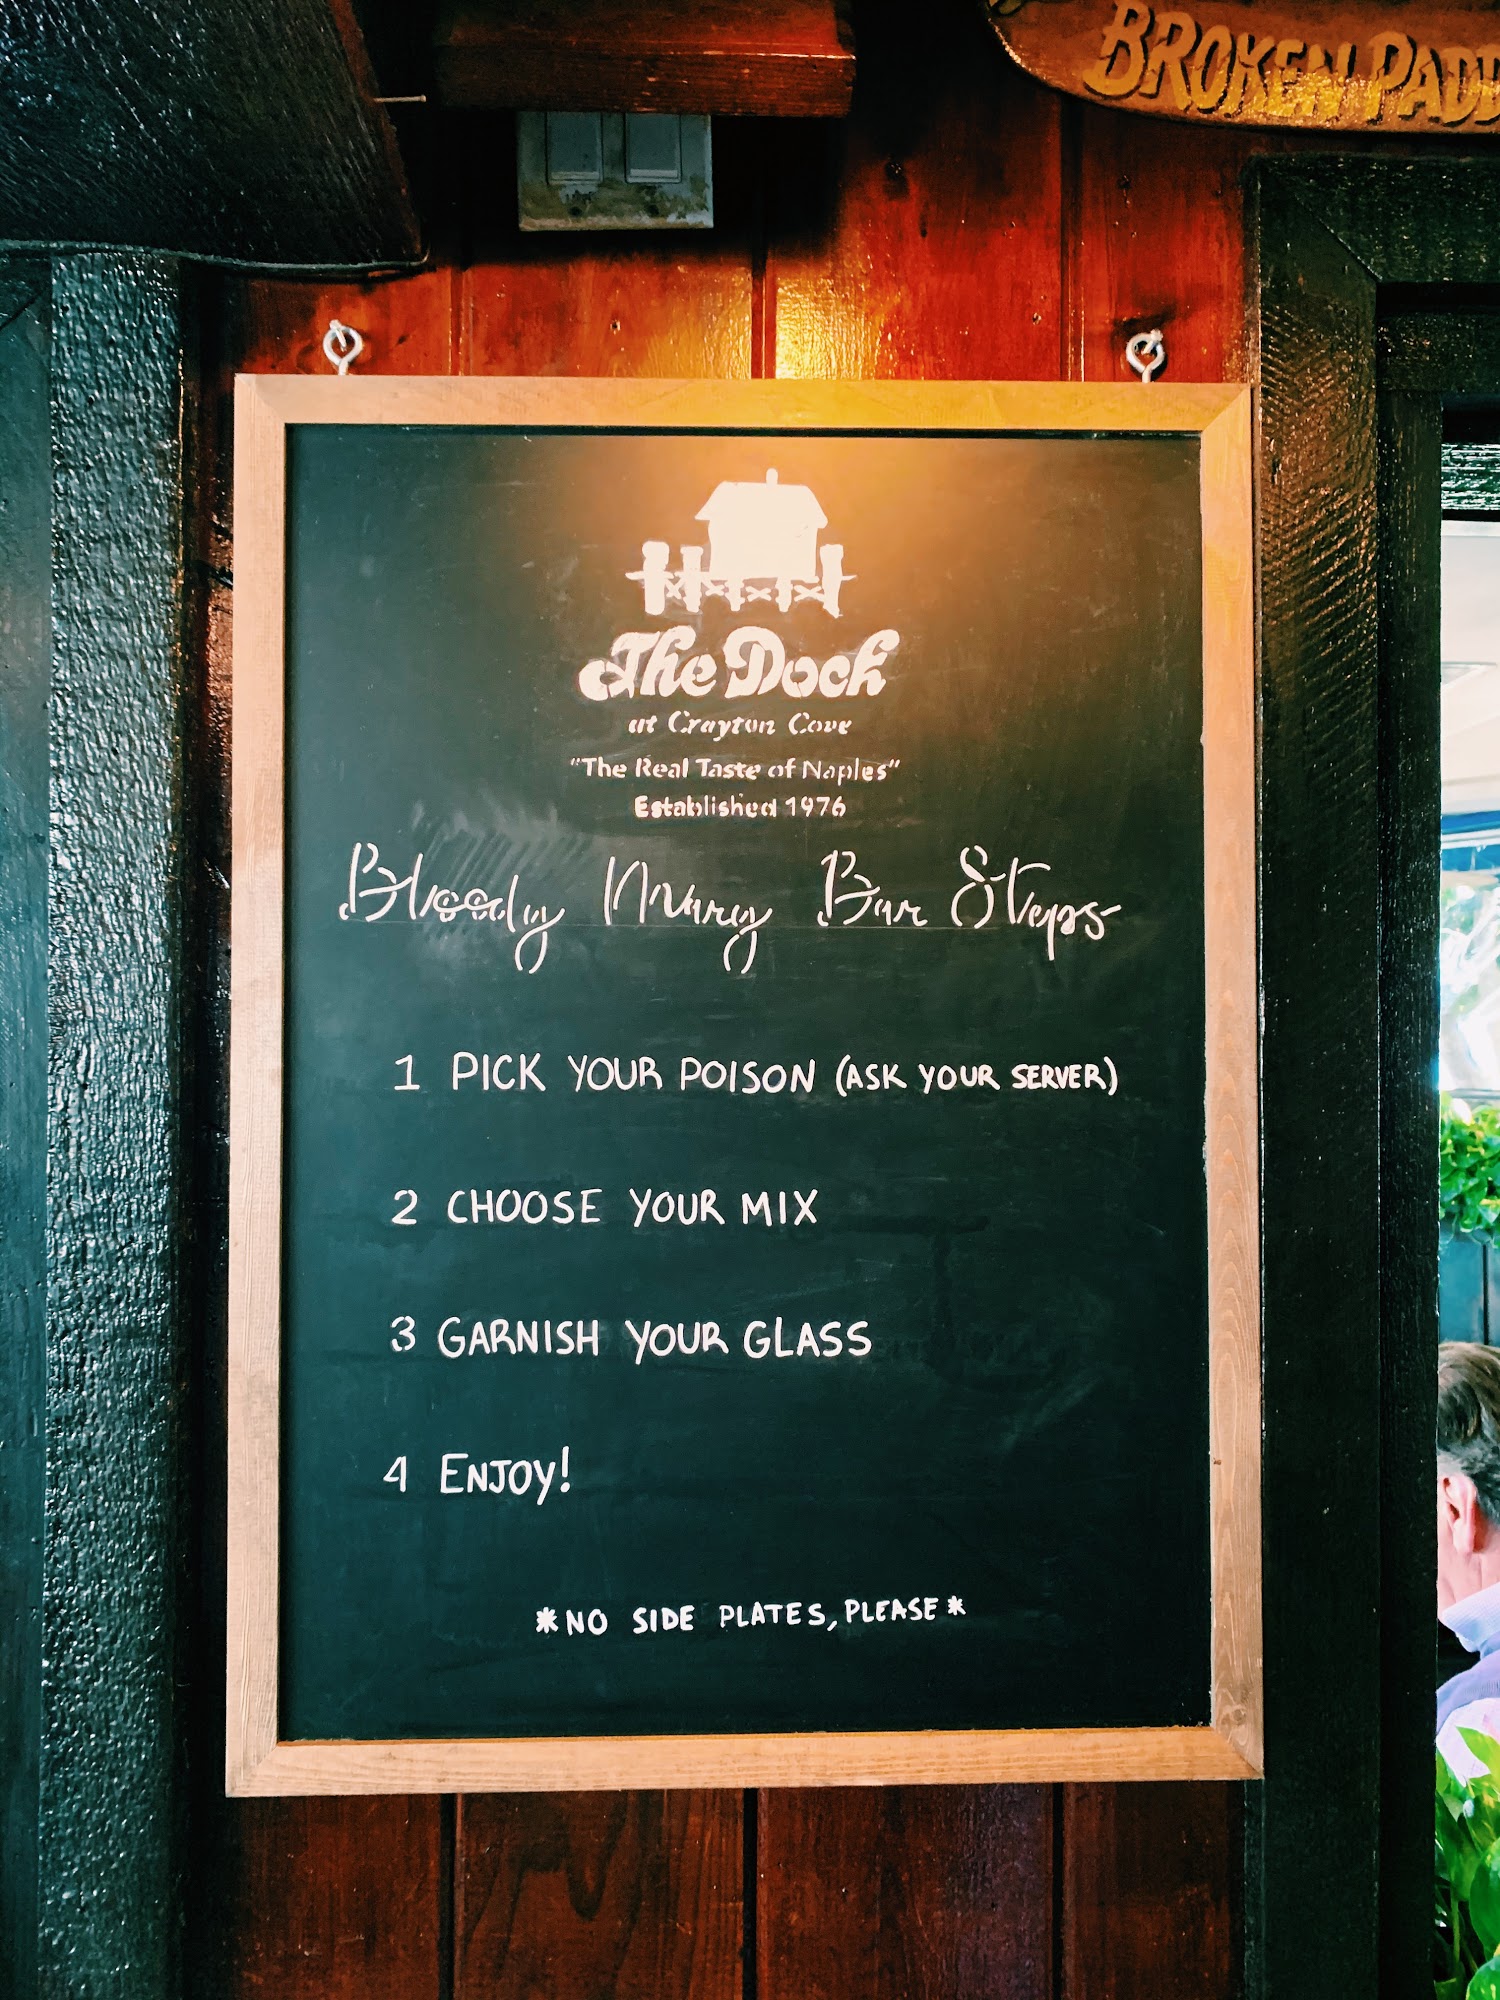 BROKEN PADD
The Dock
at Crayton Cove
"The Real Taste of Naples"
Established 1976
Bloody Mary Bar Steps
1 PICK YOUR POISON (ASK YOUR SERVER)
2 CHOOSE YOUR MIX
3 GARNISH YOUR GLASS
4 ENJOY!
*NO SIDE PLATES, PLEASE*